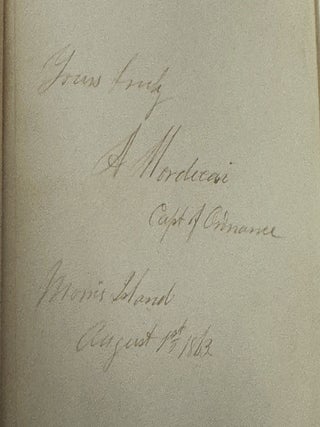 Yours truly
A Mordecai
Capt of Ordnance
Morris Island
August 1st 1863